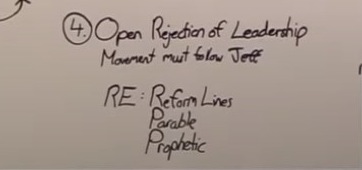 4. Open Rejection of Leadership
Movement must follow Jeff
RE: Reform Lines
Parable
Prophetic